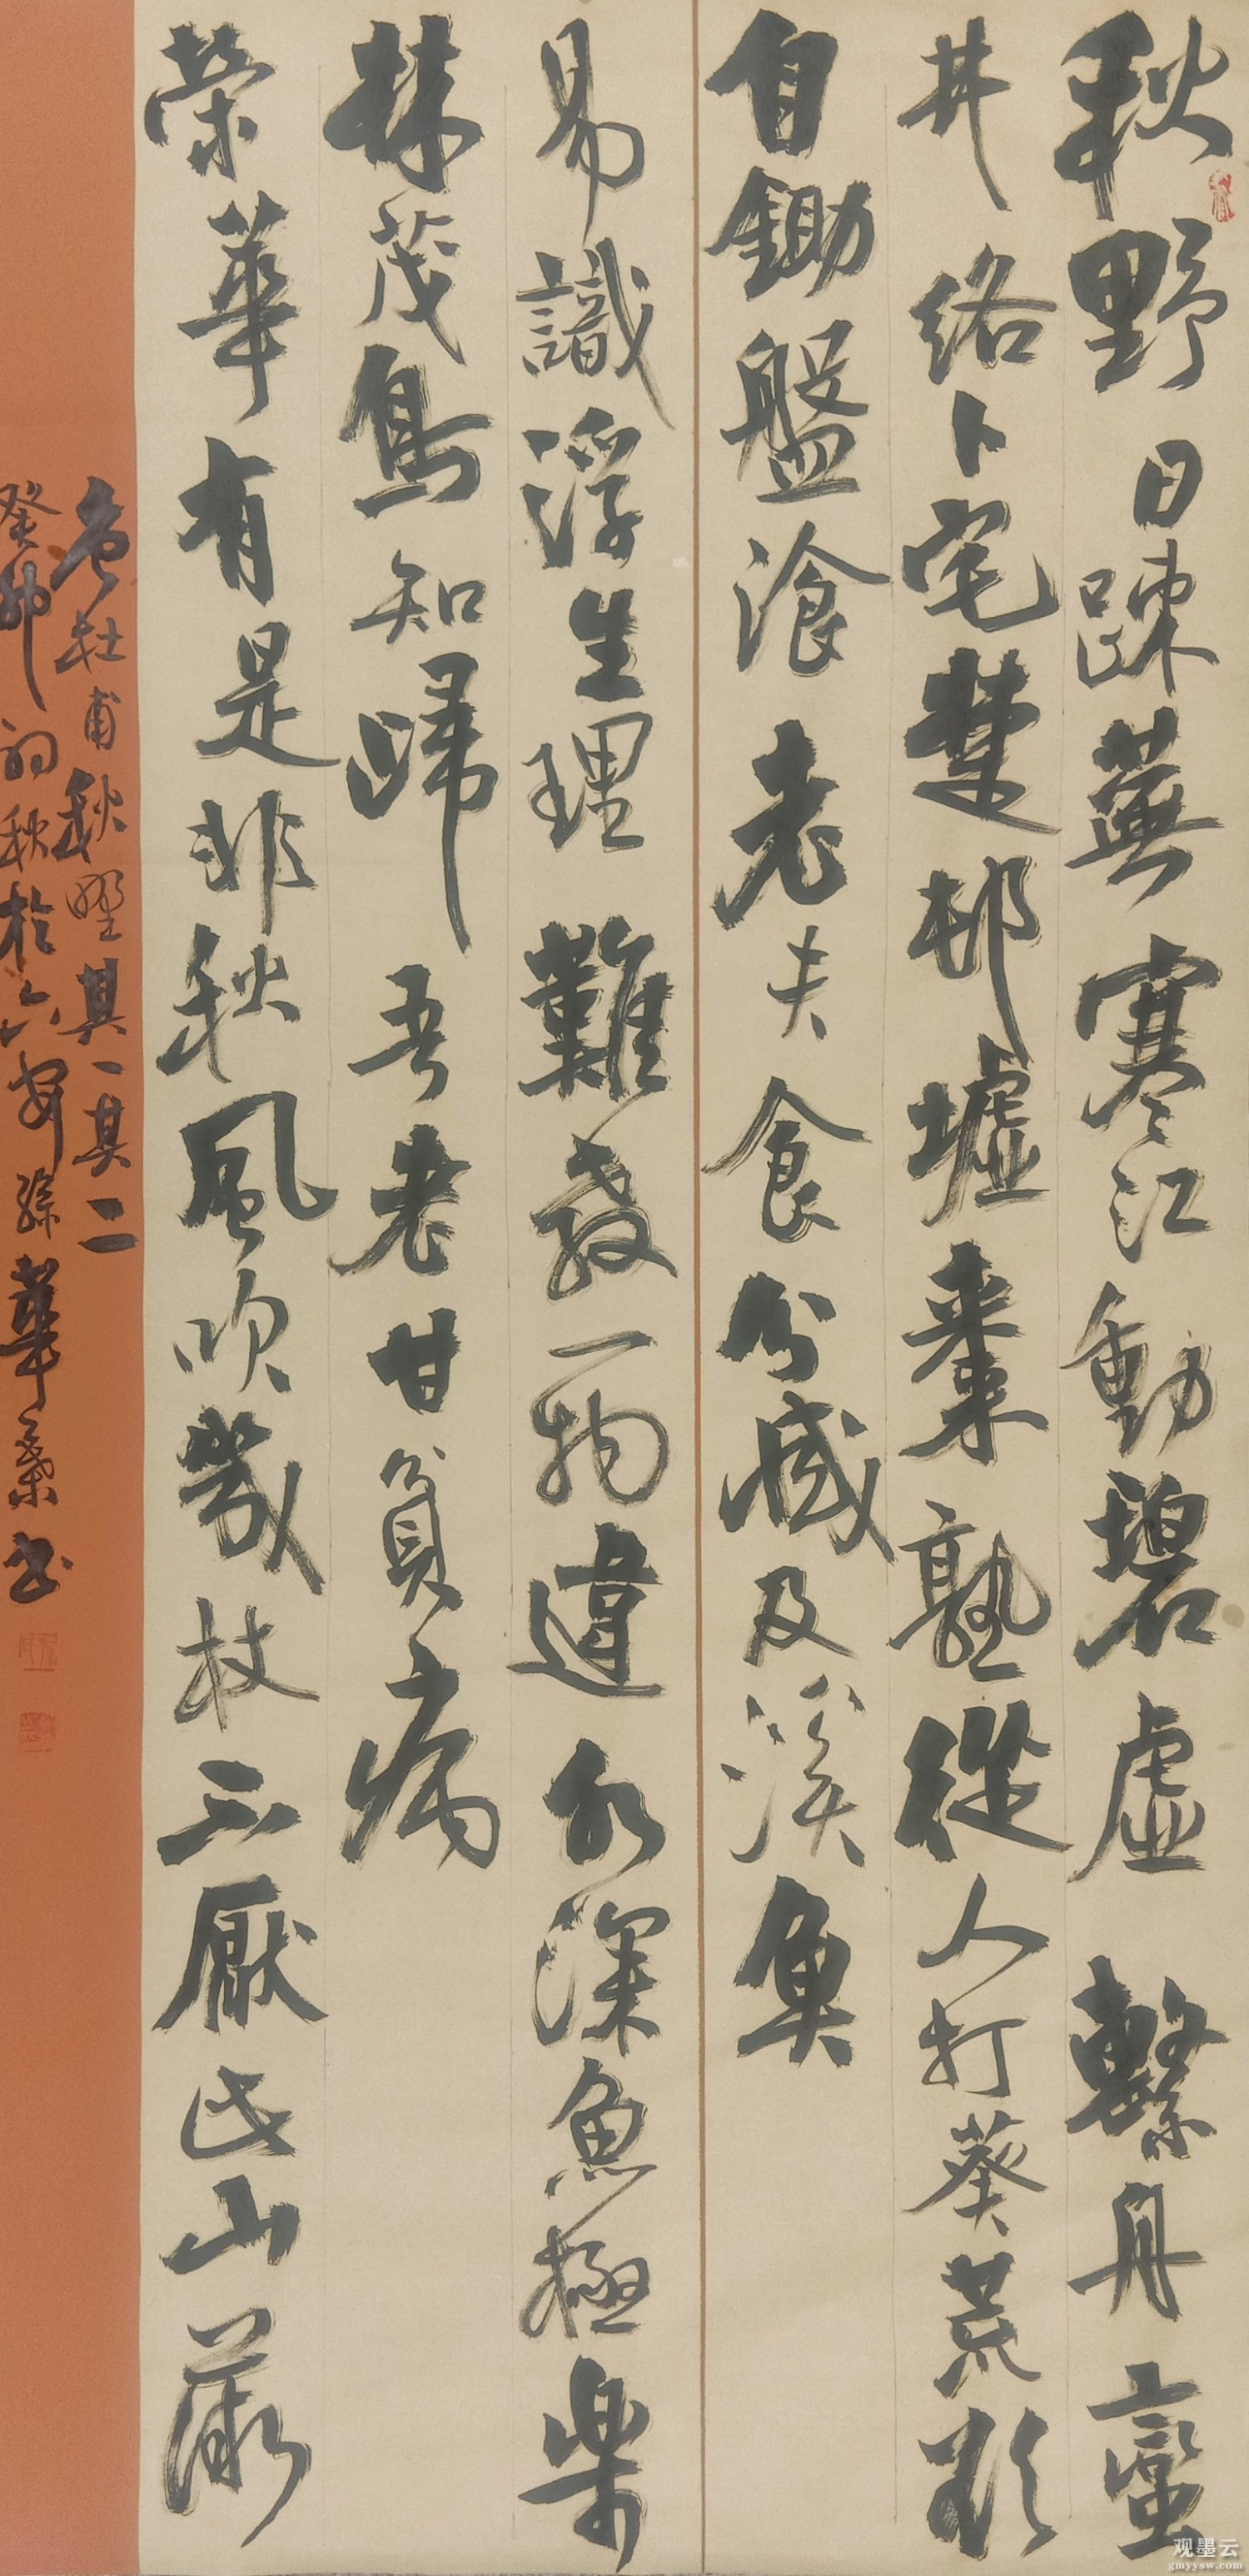 秋野日疎蕪寒江動碧虛繫舟蠻
井絡卜宅楚邨墟棗熟從人打葵荒欲
自鋤盤飧老夫食分減及溪魚
易識浮生理難教一物違水深魚極樂
林茂鳥知歸吾老甘貧病
榮華有是非秋風吹几杖不厭此山薇
杜甫秋野其一其二
癸卯初秋於六安孫華書
观墨云
gmyysw.com